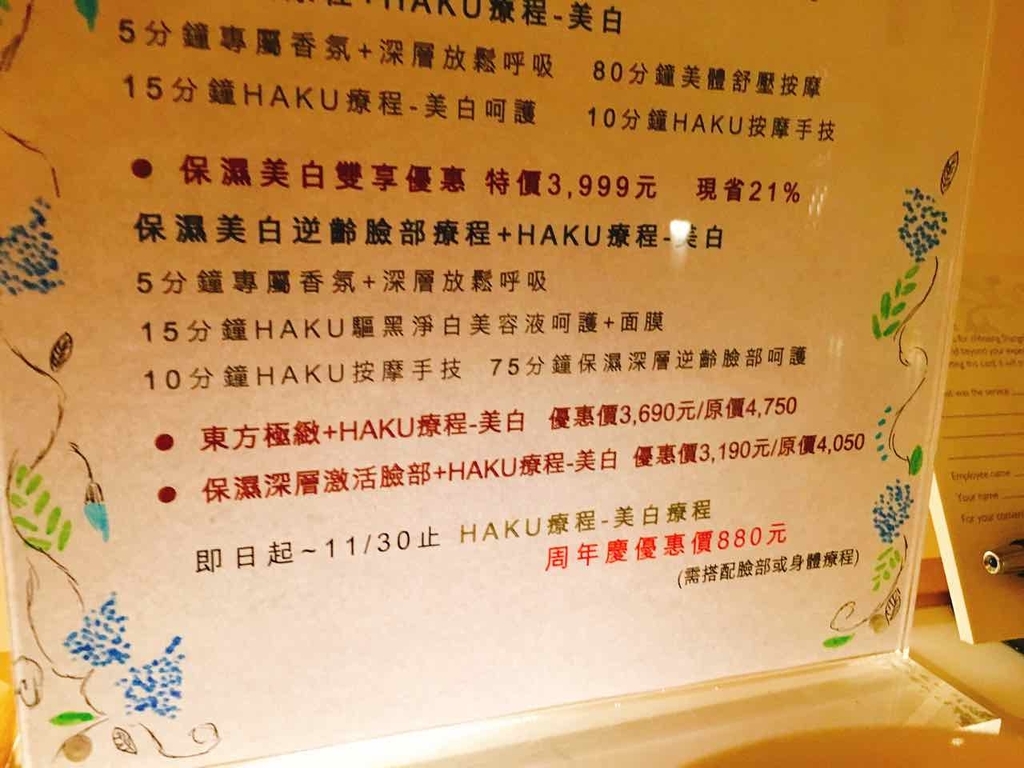 +HAKU療程-美白
5分鐘專屬香氛+深層放鬆呼吸 80分鐘美體舒壓按摩
15分鐘HAKU療程-美白呵護 10分鐘HAKU按摩手技
● 保濕美白雙享優惠 特價3,999元 現省21%
保濕美白逆齡臉部療程+HAKU療程-美白
5分鐘專屬香氛+深層放鬆呼吸
15分鐘HAKU驅黑淨白美容液呵護+面膜
10分鐘HAKU按摩手技 75分鐘保濕深層逆齡臉部呵護
● 東方極緻+HAKU療程-美白 優惠價3,690元/原價4,750
● 保濕深層激活臉部+HAKU療程-美白 優惠價3,190元/原價4,050
即日起~11/30止 HAKU療程-美白療程
周年慶優惠價880元
(需搭配臉部或身體療程)
beyond your
this card, it will
was the service
Employee name
Your name
For your